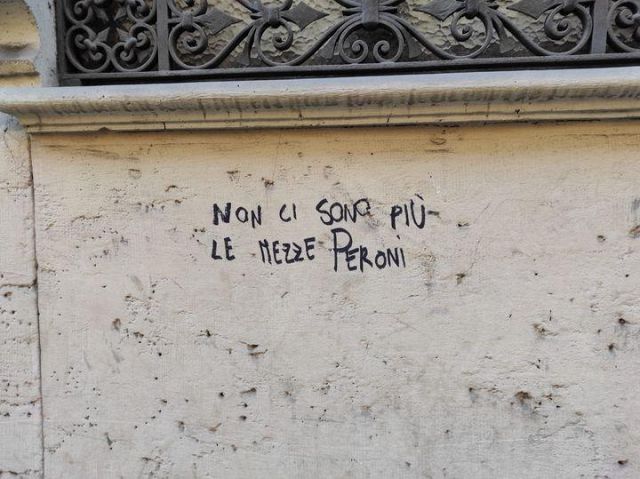 NON CI SONO PIÙ
LE MEZZE PERONI